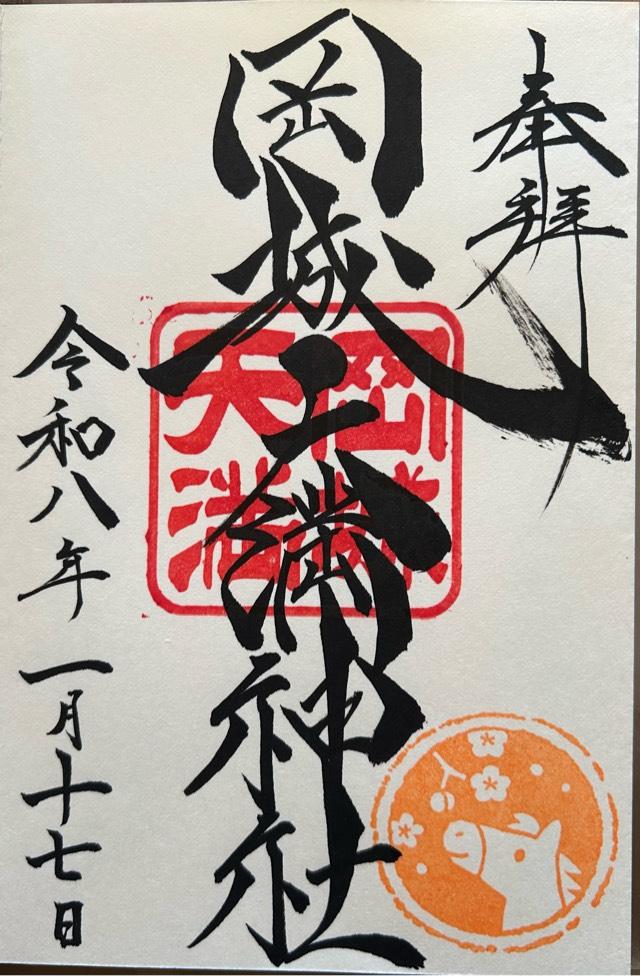 奉拝
岡城天満神社
岡城
天満
令和八年一月十七日